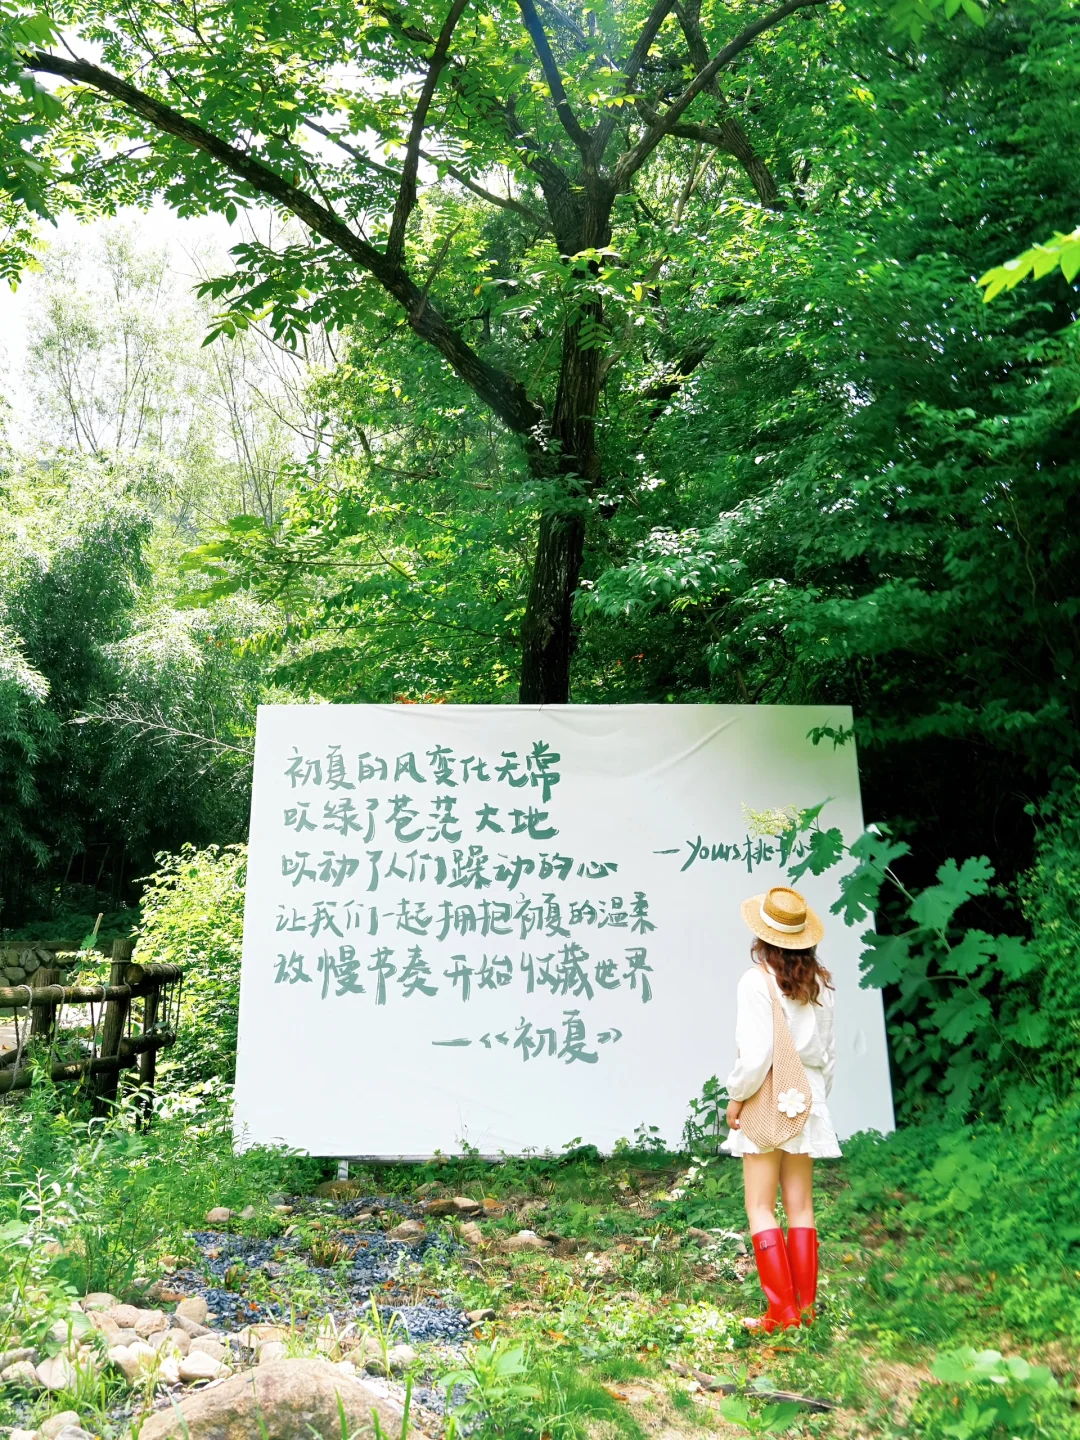 初夏的风变化无常
吹绿了苍茫大地
吹动了人们躁动的心
让我们一起拥抱初夏的温柔
放慢节奏开始收藏世界
—《初夏》
—yours桃